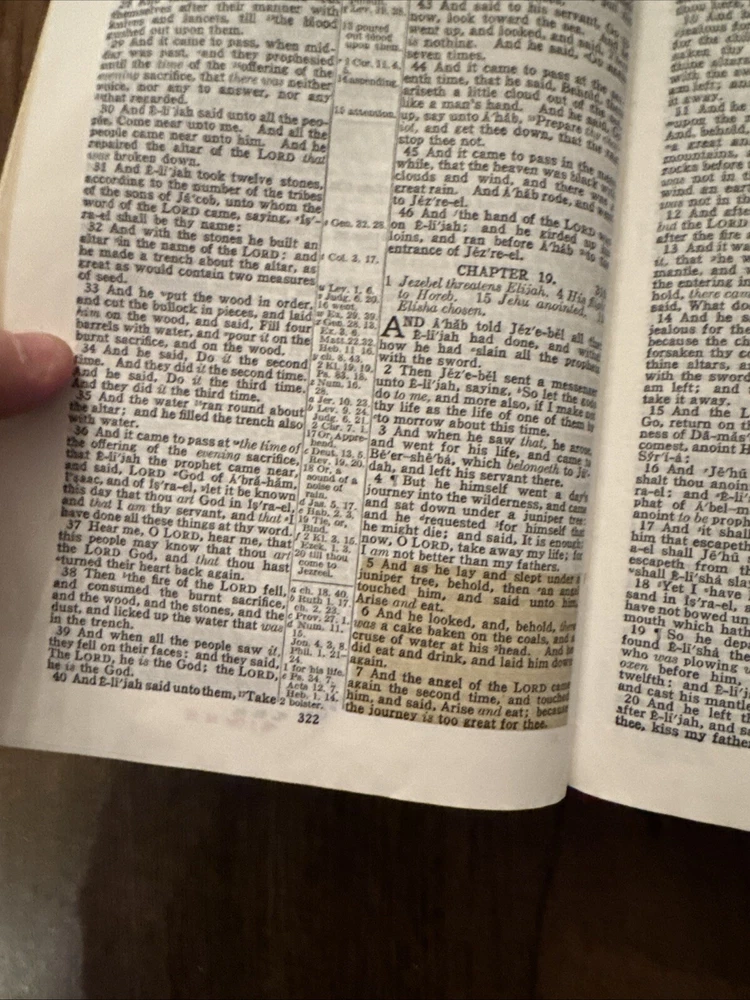 themselves after their manner with
knives and lancets, till the blood
gushed out upon them.
29 And it came to pass, when mid-
day was past, and they prophesied
until the time of the offering of the
evening sacrifice, that there was neither
voice, nor any to answer, nor any
that regarded.
30 And Ē-lī´jah said unto all the peo-
ple, Come near unto me. And all the
people came near unto him. And he
repaired the altar of the LORD that
was broken down.
31 And Ē-lī´jah took twelve stones,
according to the number of the tribes
of the sons of Jā´cob, unto whom the
word of the LORD came, saying, Iş´-
ra-el shall be thy name:
32 And with the stones he built an
altar in the name of the LORD: and
he made a trench about the altar, as
great as would contain two measures
of seed.
33 And he put the wood in order,
and cut the bullock in pieces, and laid
him on the wood, and said, Fill four
barrels with water, and pour it on the
burnt sacrifice, and on the wood.
34 And he said, Do it the second
time. And they did it the second time.
And he said, Do it the third time.
And they did it the third time.
35 And the water ran round about
the altar; and he filled the trench also
with water.
36 And it came to pass at the time of
the offering of the evening sacrifice,
that Ē-lī´jah the prophet came near,
and said, LORD God of Ā´brā-hăm,
I´şaac, and of Iş´ra-el, let it be known
this day that thou art God in Iş´ra-el,
and that I am thy servant, and that I
have done all these things at thy word.
37 Hear me, O LORD, hear me, that
this people may know that thou art
the LORD God, and that thou hast
turned their heart back again.
38 Then the fire of the LORD fell,
and consumed the burnt sacrifice,
and the wood, and the stones, and the
dust, and licked up the water that was
in the trench.
39 And when all the people saw it,
they fell on their faces: and they said,
The LORD, he is the God; the LORD,
he is the God.
40 And Ē-lī´jah said unto them, Take
13 poured
out blood
upon them.
14 ascending
15 attention.
Gen. 32. 28.
Col. 3. 17.
Lev. 1. 6.
Judg. 6. 20.
16 went.
Ex. 29. 39.
Gen. 28. 13.
Ex. 3. 6.
Matt. 22. 32.
Heb. 11. 16.
ch. 8. 43.
2 Ki. 19. 19.
Ps. 83. 18.
Num. 16.
28.
Jer. 10. 23.
Lev. 9. 24.
Judg. 6. 21.
2 Chr. 7. 1.
17 Or, Appre-
hend.
Deut. 13. 5.
Rev. 19. 20.
18 Or, a
sound of a
noise of
rain.
Jas. 5. 17.
Hab. 2. 3.
19 Tie, or,
Bind.
2 Ki. 3. 15.
Ezek. 1. 3.
20 till thou
come to
Jezreel.
a ch. 18. 40.
b Ruth 1. 17.
ch. 2. 23.
c Prov. 27. 1.
d Num. 11.
15.
Jon. 4. 3, 8.
Phil. 1. 21-
24.
1 for his life.
e Ps. 34. 7.
Acts 12. 7.
Heb. 1. 14.
2 bolster.
43 And said to his servant, Go
now, look toward the sea.
went up, and looked, and said,
is nothing. And he said, Go
seven times.
44 And it came to pass at the
enth time, that he said, Behold,
ariseth a little cloud out of the
like a man's hand. And he said,
up, say unto Ā´hăb, Prepare thy
iot, and get thee down, that the
stop thee not.
45 And it came to pass in the mean
while, that the heaven was black with
clouds and wind, and there was a
great rain. And Ā´hăb rode, and went
to Jĕz´re-el.
46 And the hand of the LORD was
on Ē-lī´jah; and he girded up his
loins, and ran before Ā´hăb to the
entrance of Jĕz´re-el.
CHAPTER 19.
1 Jezebel threatens Elijah. 4 His flight
to Horeb. 15 Jehu anointed.
Elisha chosen.
AND Ā´hăb told Jĕz´e-bĕl all that
Ē-lī´jah had done, and withal
how he had slain all the prophets
with the sword.
2 Then Jĕz´e-bĕl sent a messenger
unto Ē-lī´jah, saying, So let the gods
do to me, and more also, if I make not
thy life as the life of one of them by
to morrow about this time.
3 And when he saw that, he arose,
and went for his life, and came to
Bē´er-shē´bá, which belongeth to Jū´-
dah, and left his servant there.
4 ¶ But he himself went a day's
journey into the wilderness, and came
and sat down under a juniper tree:
and he requested for himself that
he might die; and said, It is enough;
now, O LORD, take away my life; for
I am not better than my fathers.
5 And as he lay and slept under a
juniper tree, behold, then an angel
touched him, and said unto him,
Arise and eat.
6 And he looked, and, behold, there
was a cake baken on the coals, and a
cruse of water at his head. And he
did eat and drink, and laid him down
again.
7 And the angel of the LORD came
again the second time, and touched
him, and said, Arise and eat; because
the journey is too great for thee.
322
11 And he
upon the
And, behold,
a great an
mountains,
rocks before
was not in t
wind an ear
was not in th
12 And after
but the LORD
after the fire
13 And it wa
it, that he w
mantle, and
the entering in
hold, there cam
14 And he s
jealous for the
because the ch
forsaken thy c
thine altars, a
with the sword
am left; and
take it away.
15 And the L
Go, return on th
ness of Dā-măs´
comest, anoint H
Sy̆r´ĭ-á:
16 And Jē´hū
shalt thou anoin
ra-el: and Ē-lī´
phat of Ā´bel-m
anoint to be proph
17 And it shall
him that escapeth
a-el shall Jē´hū
escapeth from th
shall Ē-lī´shá slay
18 Yet I have
sand in Iş´ra-el,
have not bowed un
mouth which hath
19 ¶ So he depa
found Ē-lī´shá the
who was plowing w
oxen before him,
twelfth: and Ē-lī´
and cast his mantle
20 And he left th
after Ē-lī´jah, and sa
thee, kiss my fathe